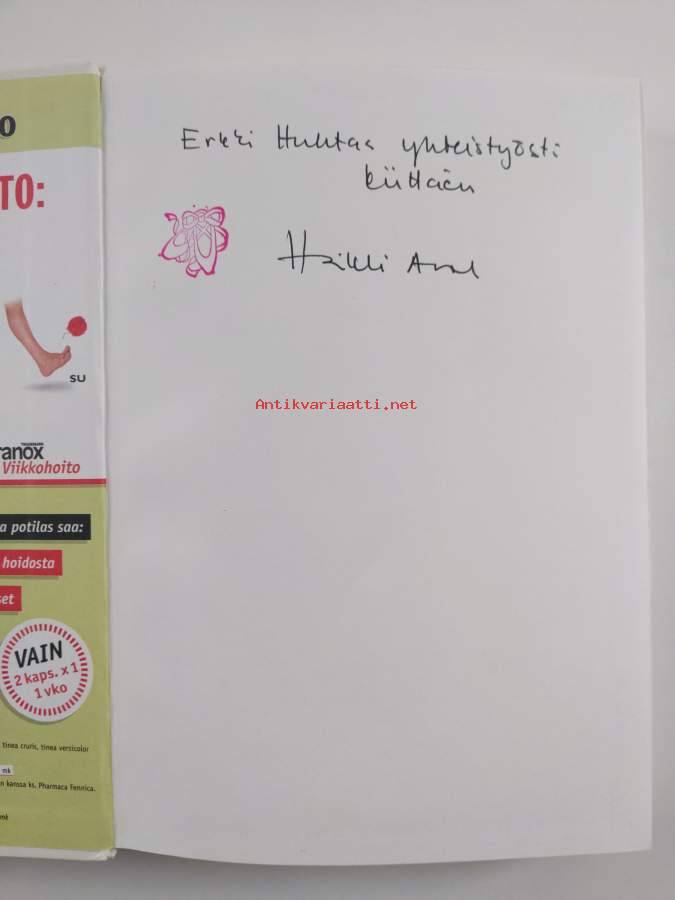 O
TO:
SU
ranox
Viikkohoito
a potilas saa:
hoidosta
set
VAIN
2 kaps. x 1
1 vko
tinea cruris, tinea versicolor
mk
n kanssa ks. Pharmaca Fennica.
mk
Erkki Huhtaa yhteistyöstä
kiittäen
Heikki
Antikvariaatti.net